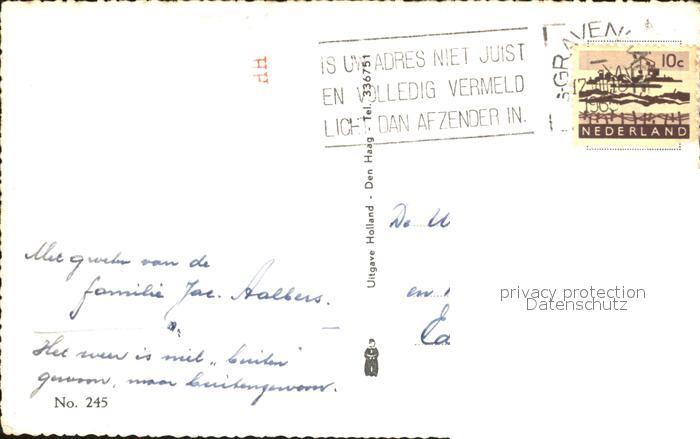 IS UW ADRES NIET JUIST
EN VOLLEDIG VERMELD
LICHT DAN AFZENDER IN.
'S-GRAVENHAGE
10c
NEDERLAND
HH
Uitgave Holland - Den Haag - Tel. 336751
Met groeten van de
familie Jac. Aalbers.
Het weer is niet „buiten"
gewoon, maar buitengewoon.
No. 245
De
en
privacy protection
Datenschutz